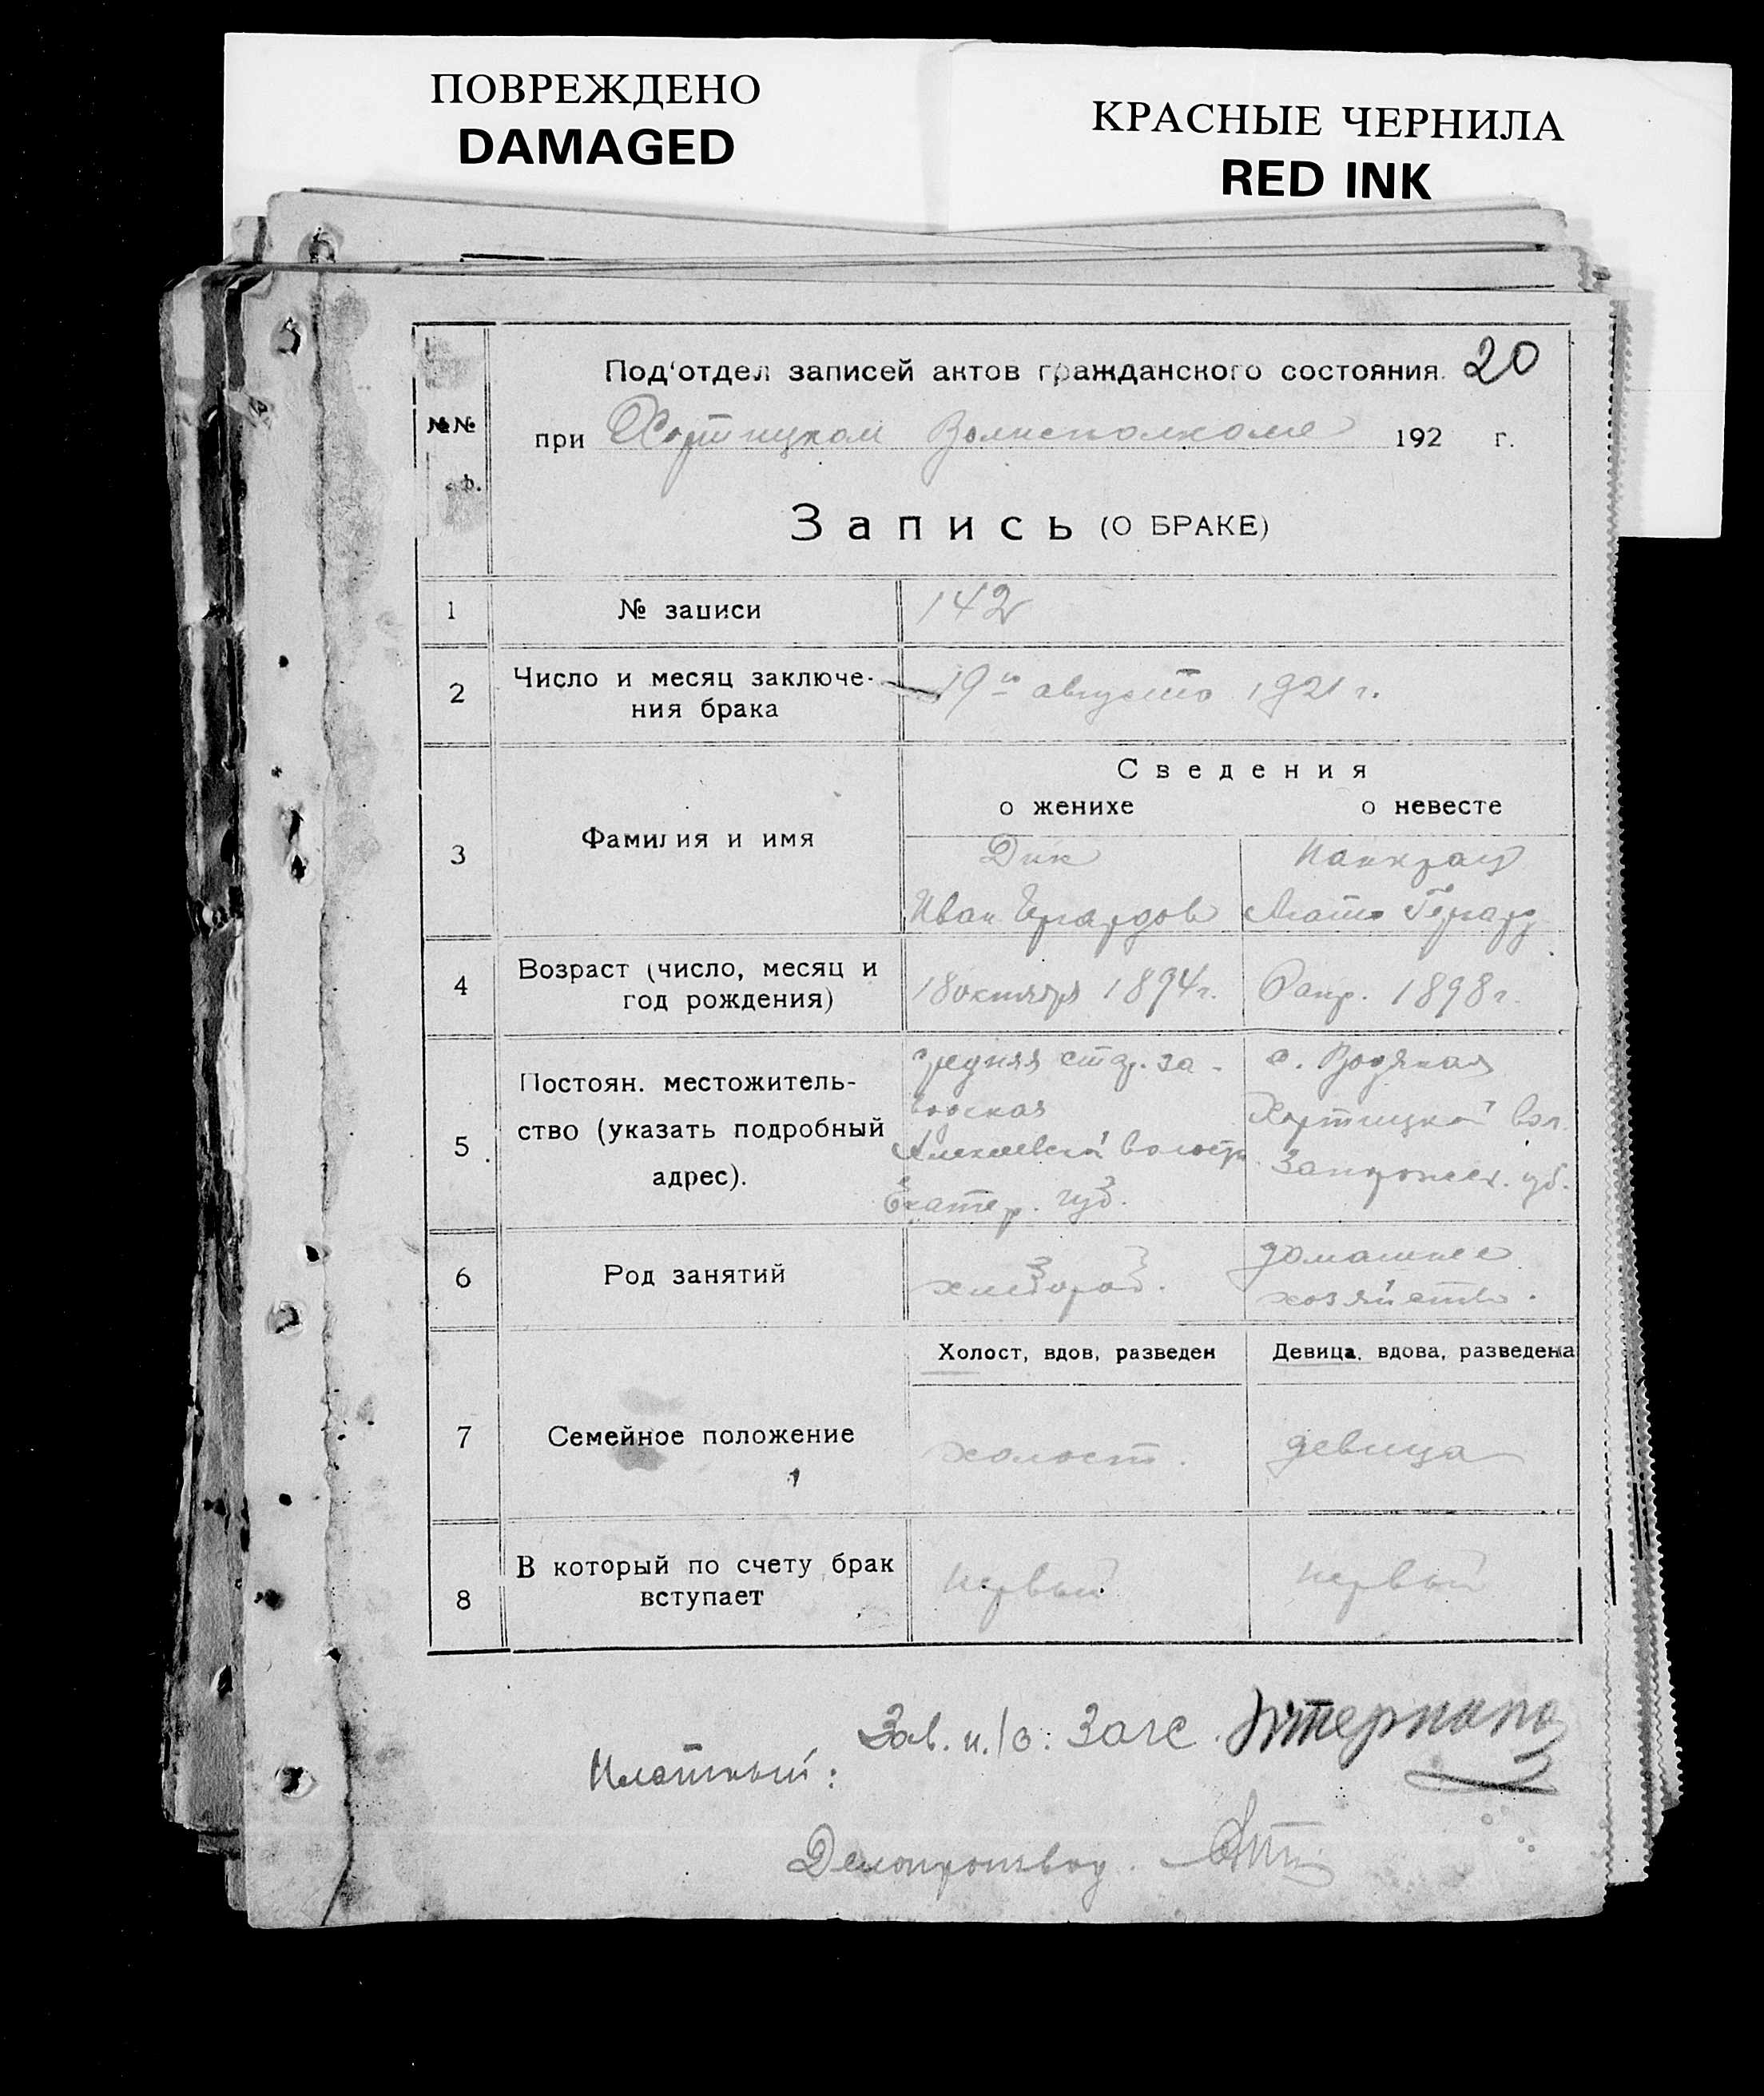 ПОВРЕЖДЕНО
DAMAGED
КРАСНЫЕ ЧЕРНИЛА
RED INK
Под'отдел записей актов гражданского состояния. 20
№№
при Хортицком Волисполкоме 192 г.
Запись (О БРАКЕ)
1 № записи 142
2 Число и месяц заключе-
ния брака
19го августа 1921 г.
Сведения
о женихе о невесте
3 Фамилия и имя
Дик Панкрац
Иван Герардов Агата Герард
4 Возраст (число, месяц и
год рождения)
18 октября 1894 г. апр. 1898 г.
5 Постоян. местожитель-
ство (указать подробный
адрес).
средняя стор. за-
водская
Алексеевской волости
Екатер. губ.
с. Водяная
Хортицкой вол.
Запорожск. губ.
6 Род занятий
хлебороб. домашнее
хозяйство.
Холост, вдов, разведен Девица, вдова, разведена
7 Семейное положение
холост. девица
8 В который по счету брак
вступает
первый первый
Зав. п./о: Загс.
Делопроизвод.